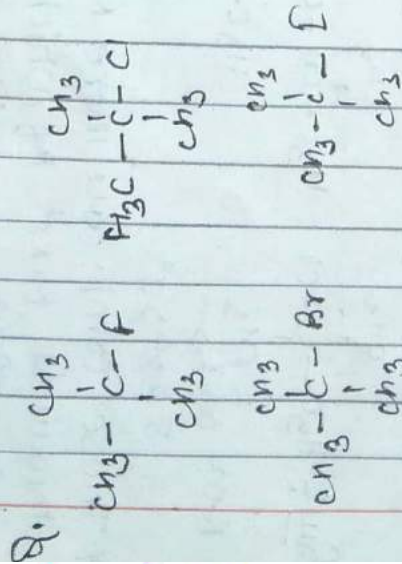 Q.
CH3 CH3
CH3 – C – F H3C – C – Cl
CH3 CH3
CH3 CH3
CH3 – C – Br CH3 – C – I
CH3 CH3